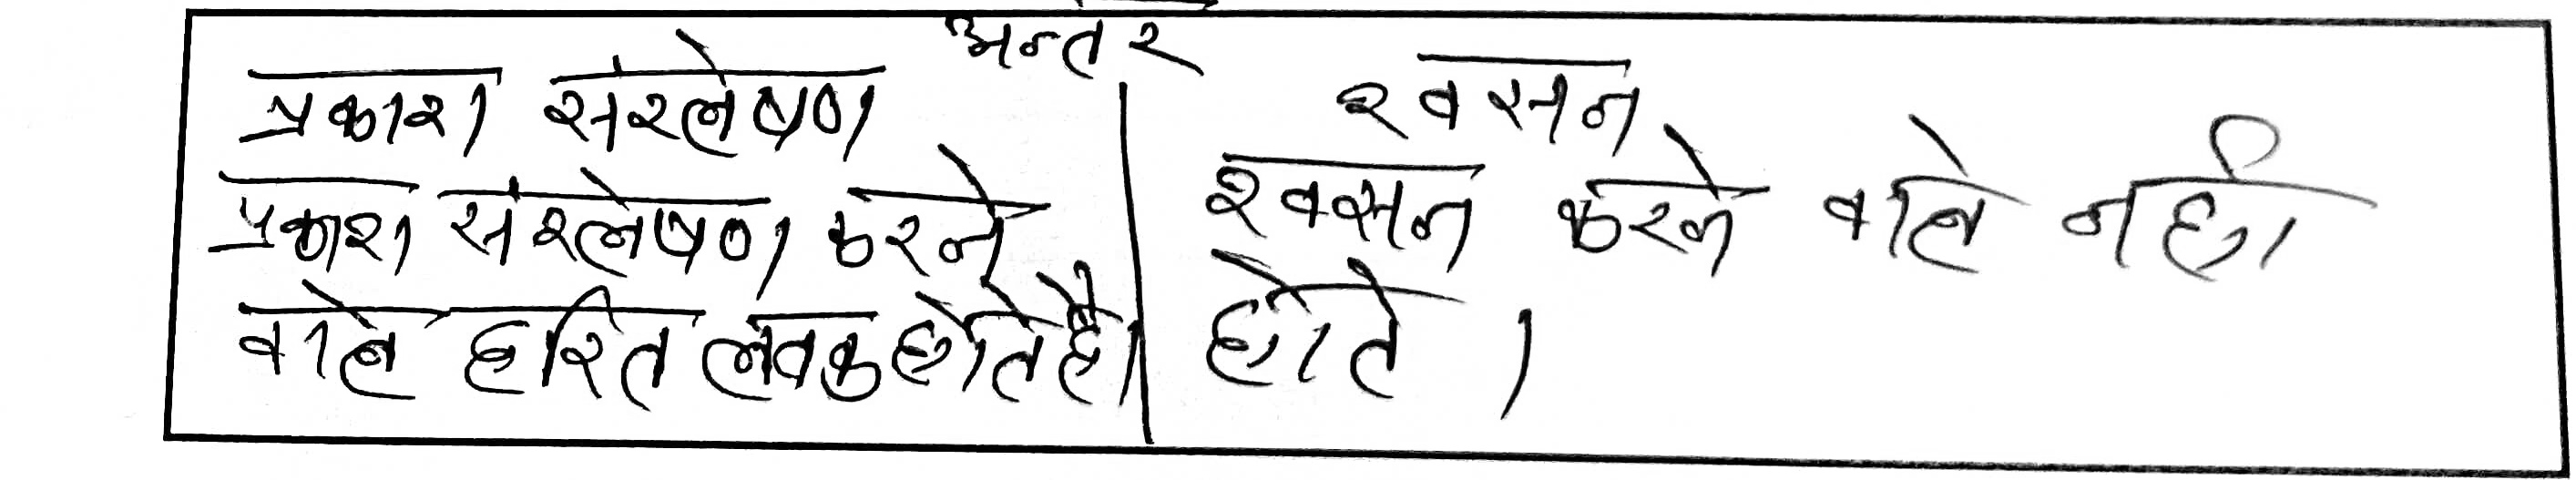 अन्तर
प्रकाश संश्लेषण
श्वसन
प्रकाश संश्लेषण करने
वाले हरित लवक होते है।
श्वसन करने वाले नही
होते ।